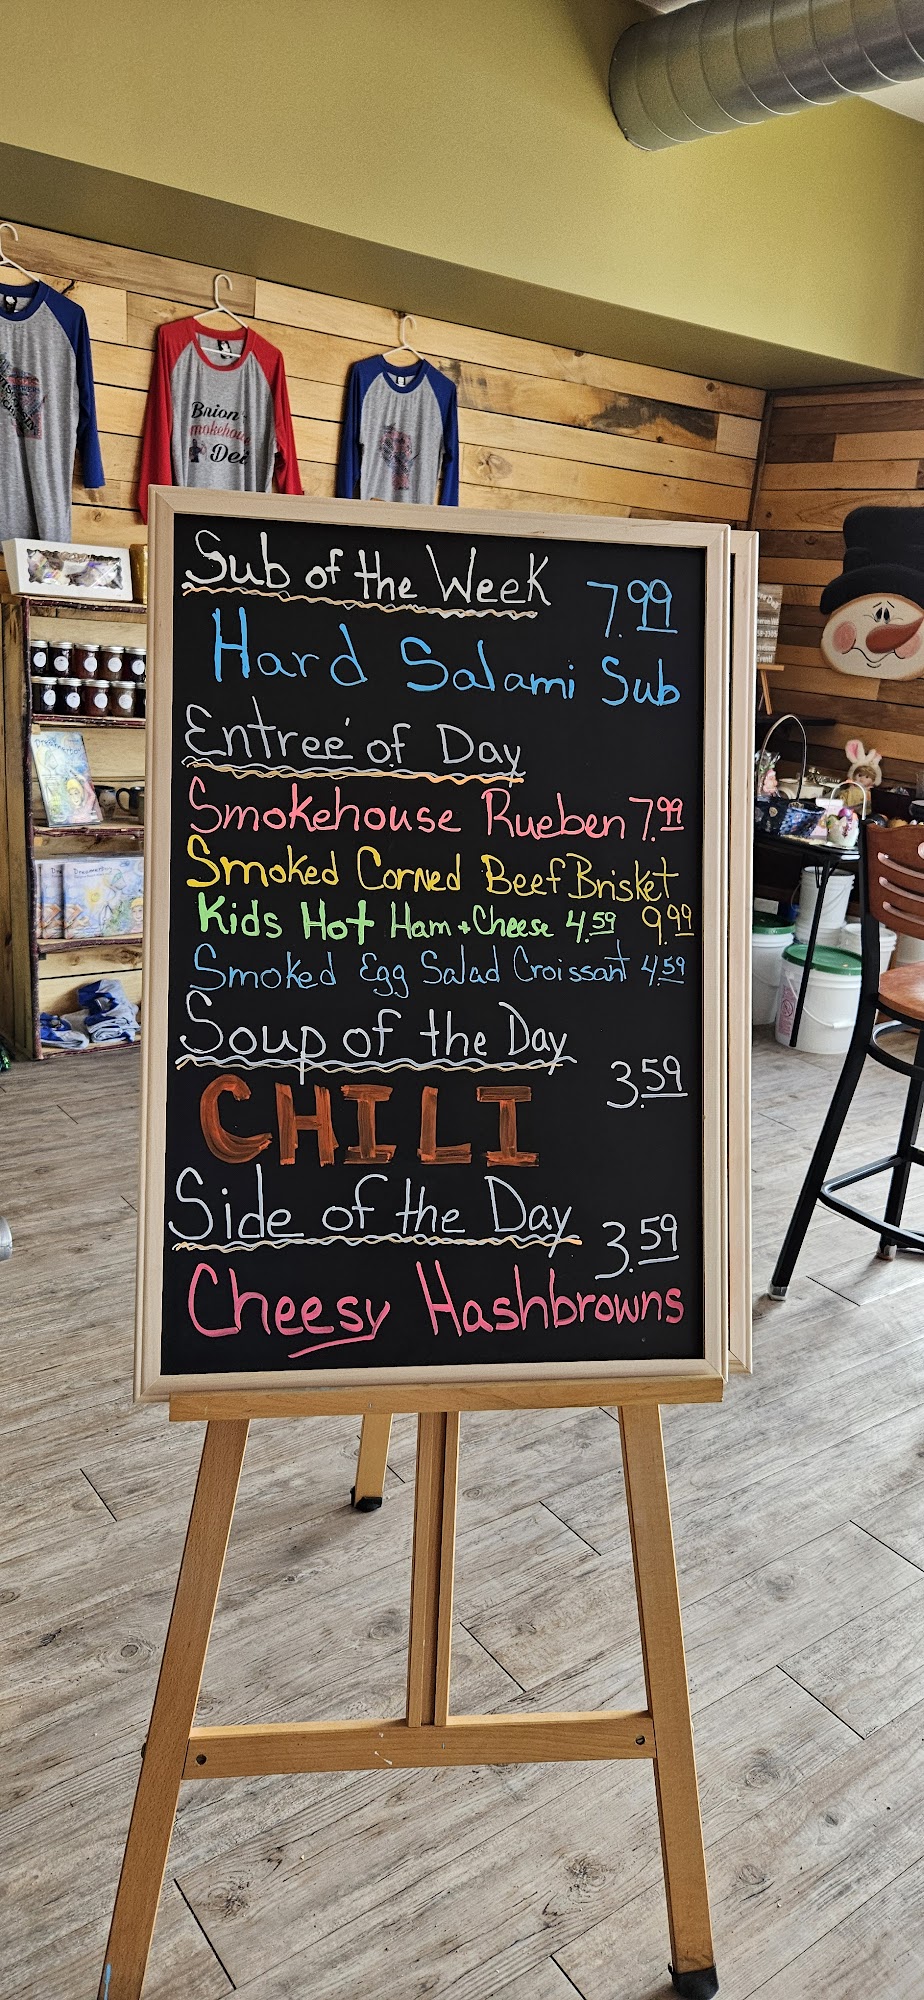 Brion's
Smokehouse
Deli
Sub of the Week 7.99
Hard Salami Sub
Entreé of Day
Smokehouse Rueben 7.99
Smoked Corned Beef Brisket
Kids Hot Ham + Cheese 4.59 9.99
Smoked Egg Salad Croissant 4.59
Soup of the Day
3.59
CHILI
Side of the Day 3.59
Cheesy Hashbrowns